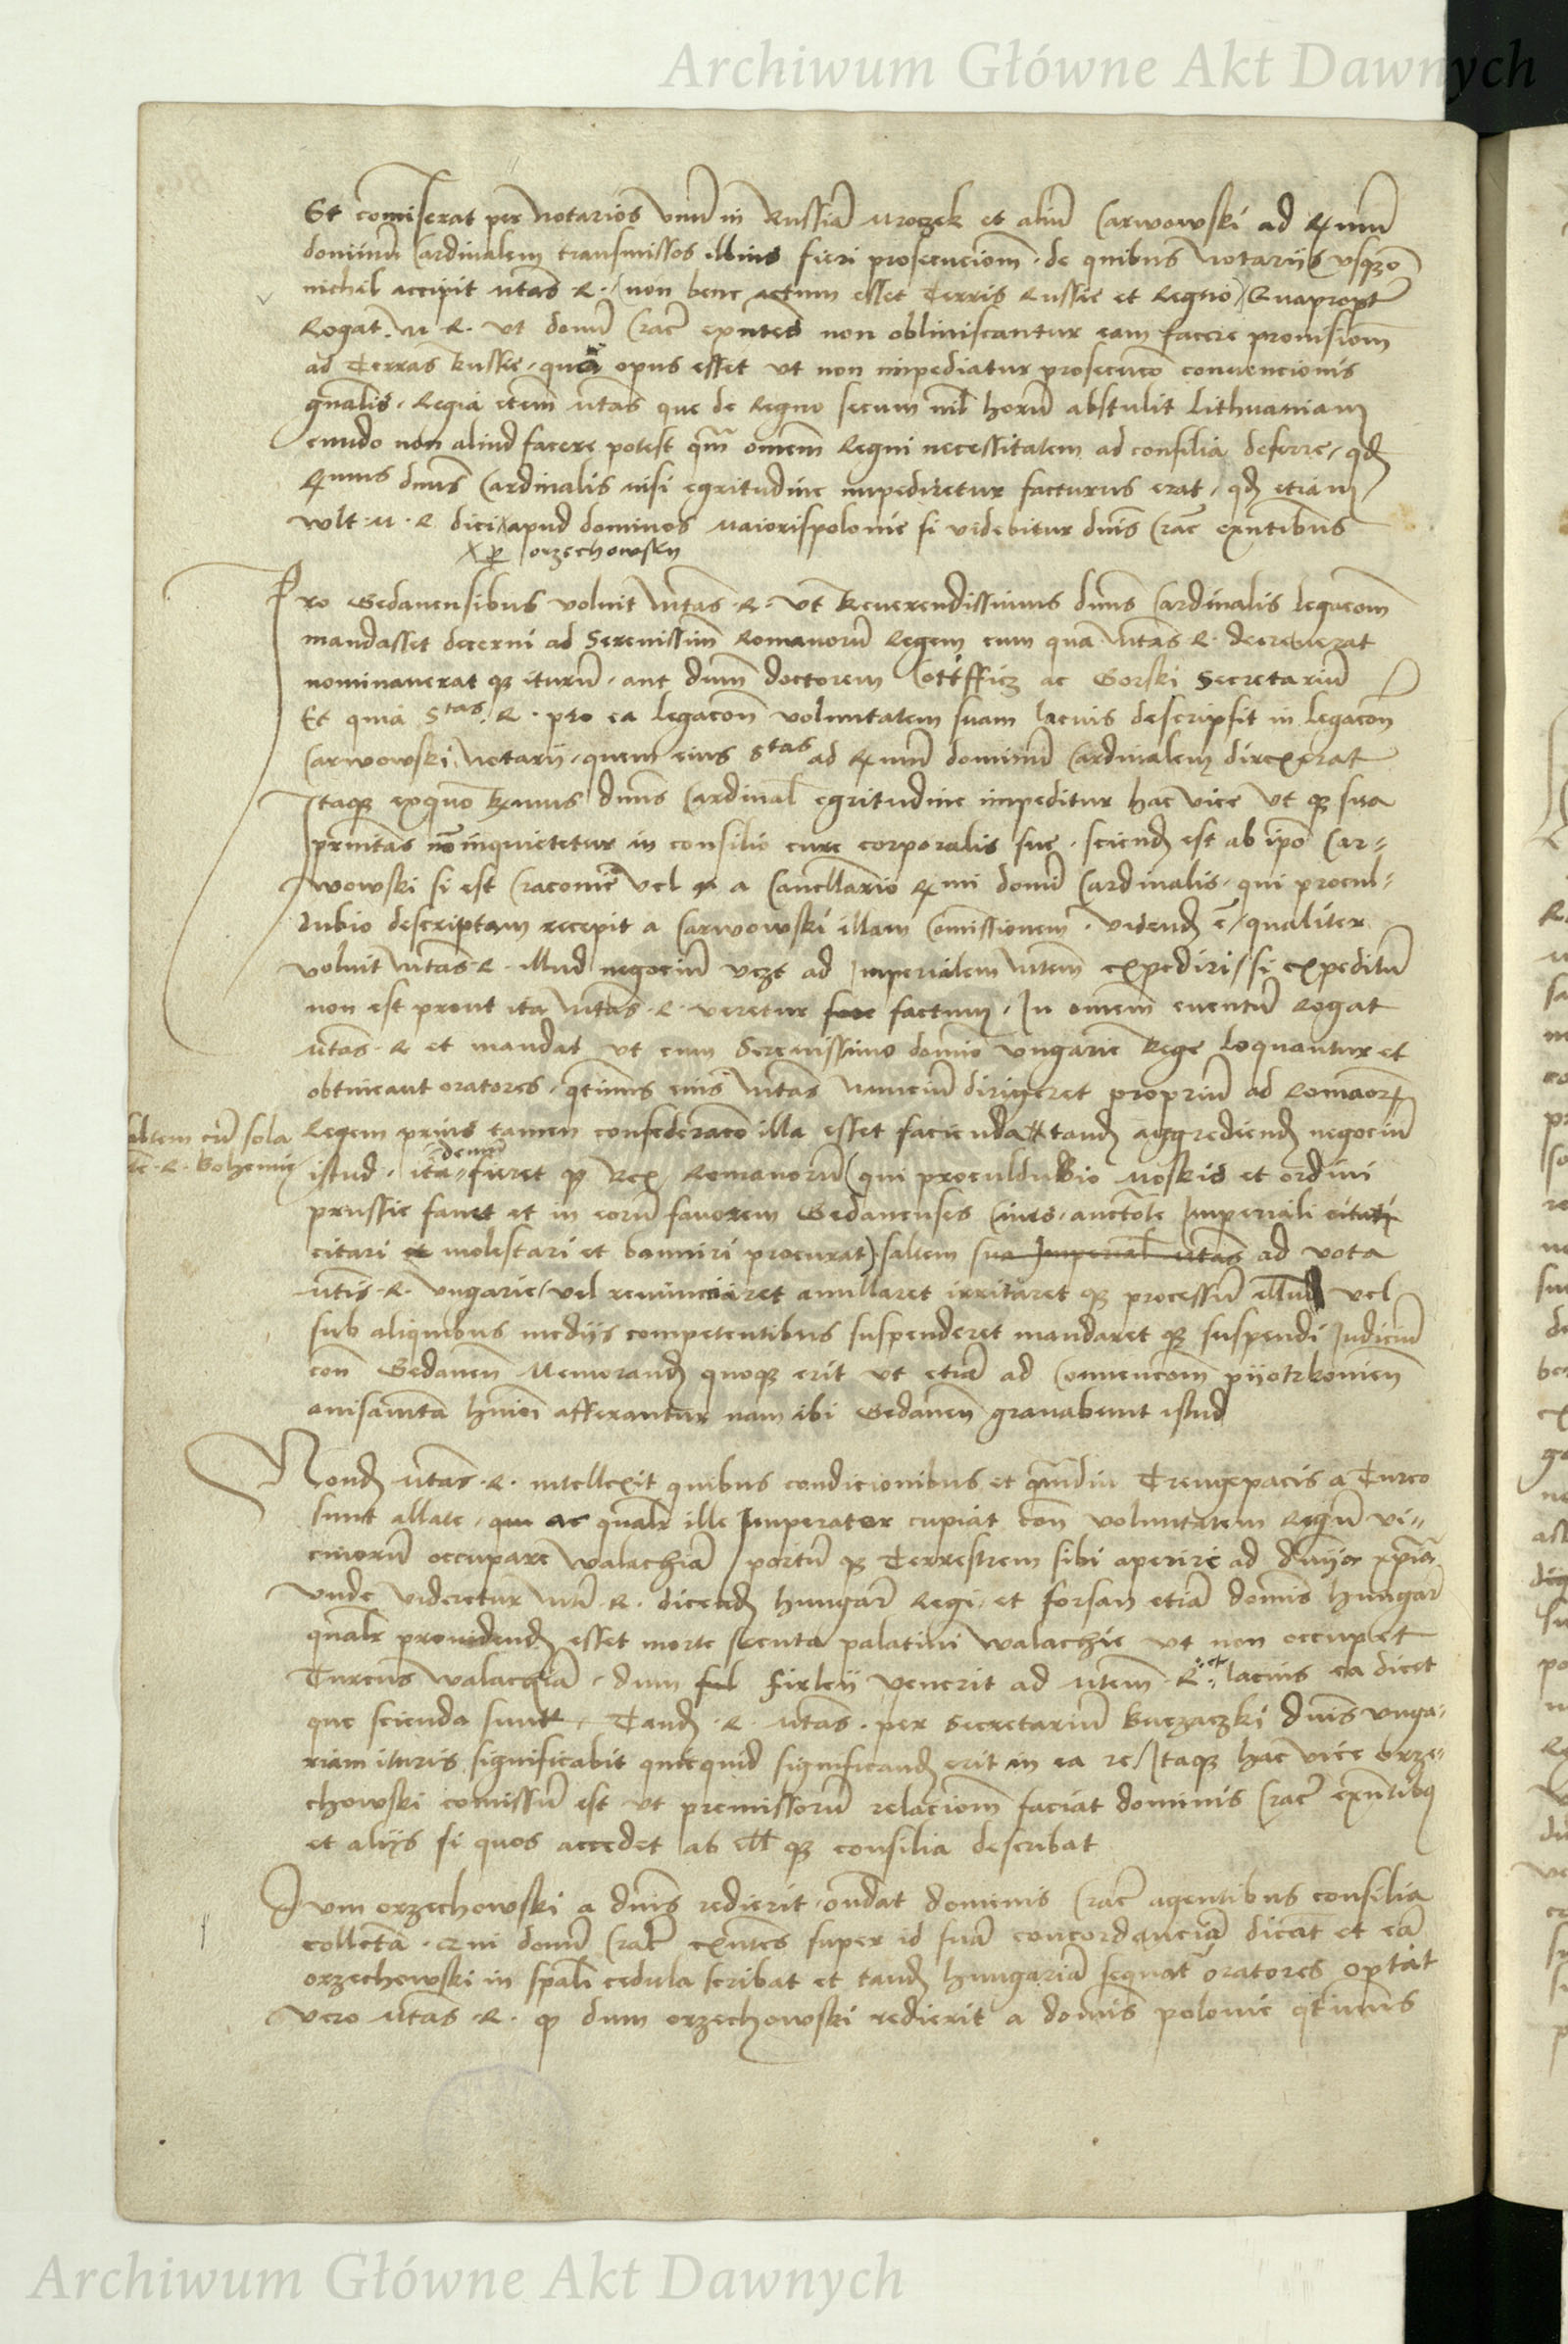 Archiwum Główne Akt Dawnych
Et comiserat per Notarios unū in Russiā Mrozek et aliū Carwowski ad Rmum
dominum Cardinalem transmissos illius fieri prosecuciom̄ · de quibus Notariis usqʒ
nichil accipit Mtas R · non bene actum esset Terris Russie et Regno / Quapropt
Rogat M · R · ut domī Crac̄ exntes non obliuiscantur eam facere prouisiom̄
ad Terras Russie · qua opus esset ut non impediatur prosecuco conuencionis
gn̄alis · Regia etem̄ Mtas que de Regno secum nil horū abstulit Lithuaniam
eundo non aliud facere potest qm̄ omem̄ Regni necessitatem ad consilia deferre · qd
Rmus dnus Cardinalis nisi egritudine impediretur facturus erat · qd etiam
wlt · M · R dici apud dominos Maiorispolonie si videbitur dnis Crac exntibus
X p orzechowsky
Pro Gedanensibus voluit Mtas · R · ut Reuerendissimus dnus Cardinalis legacom̄
mandasset decerni ad Serenissim̄ Romanorū Regem cum qua Mtas R · decreuerat
nominauerat qʒ iturū · aut dnum̄ doctorem ac Gorski Secretariū
Et quia Stas · R · pro ea legacom̄ voluntatem suam lacius descripsit in legacom̄
Carwowski Notarii · quem eius Stas ad Rmum dominū Cardinalem direxerat
Itaqʒ exquo Rmus dnus Cardinal egritudine impeditur hac vice ut qʒ sua
prnitas nō inquietetur in consilio cure corporalis sue · sciend est ab ipo Car=
wowski si est Cracouie vel a Cancellario Rmi domī Cardinalis · qui procul=
dubio descriptam recepit a Carwowski illam Comissionem · vidend ē / qualiter
voluit Mtas · R · illud negociū ad Imperialem Mtem̄ expediri / si expeditū
non est prout ita Mtas · R · veretur fore factum · In omem̄ euentū Rogat
Mtas · R et mandat ut cum Serenissimo domīo Ungarie Rege loquantur et
obtineant oratores · qtinus eius Mtas Nunciū dirigeret propriū ad Romaor
saltem cū sola Regem prius tamen confederaco illa esset facienda tand aggrediend negociū
te · R · Bohemie istud · ita demū fieret qʒ Rex Romanorū (qui proculdubio Moskis et ordini
prussie fauet et in eorū fauorem Gedanenses Ciues · auctote Imperiali citati
citari et molestari et banniri procurat) saltem sua Imperial Mtas ad vota
Mtis · R · Ungarie / vel renunciaret anullaret irritaret qʒ processū illud vel
sub aliquibus mediis competentibus suspenderet mandaret qʒ suspendi Judiciū
con̄ Gedanen̄ Memorand quoqʒ erit ut etiā ad Conuencom̄ pyotrkouien̄
auisamta hmoi afferantur nam ibi Gedanen̄ grauabunt istud
Nond Mtas · R · intellexit quibus condicionibus et qmdiu Treugepacis a Turco
sunt allate · qm ac qualr ille Imperator cupiat con̄ voluntatem Regū vi=
cinorū occupare walachiā / portū qʒ Terrestrem sibi aperire ad
Unde videretur Mti · R · dicend Hungar Regi · et forsan etiā domīs Hungar
qualr prouidend esset morte secuta palatini walachie ut non occupet
Turcus walachiā · dum ful Firley venerit ad Mtem̄ · R · et lacius ea dicet
que scienda sunt · Tand · R · Mtas · per Secretariū Buczaczki dnis Unga=
riam ituris significabit quicquid significand erit in ea re / Itaqʒ hac vice orze=
chowski comissū est ut premissorū relaciom̄ faciat dominis Crac̄ exntibus
et aliis si quos accedet ab ill qʒ consilia describat
Dum orzechowski a dnis redierit · ondat dominis Crac̄ agentibus consilia
collecta · domī Crac̄ exntes super id suā concordanciā dicāt et eā
orzechowski in spali cedula scribat et tand Hungariā sequat oratores optat
vero Mtas · R · qʒ dum orzechowski redierit a domīs polonie qtinus
Archiwum Główne Akt Dawnych